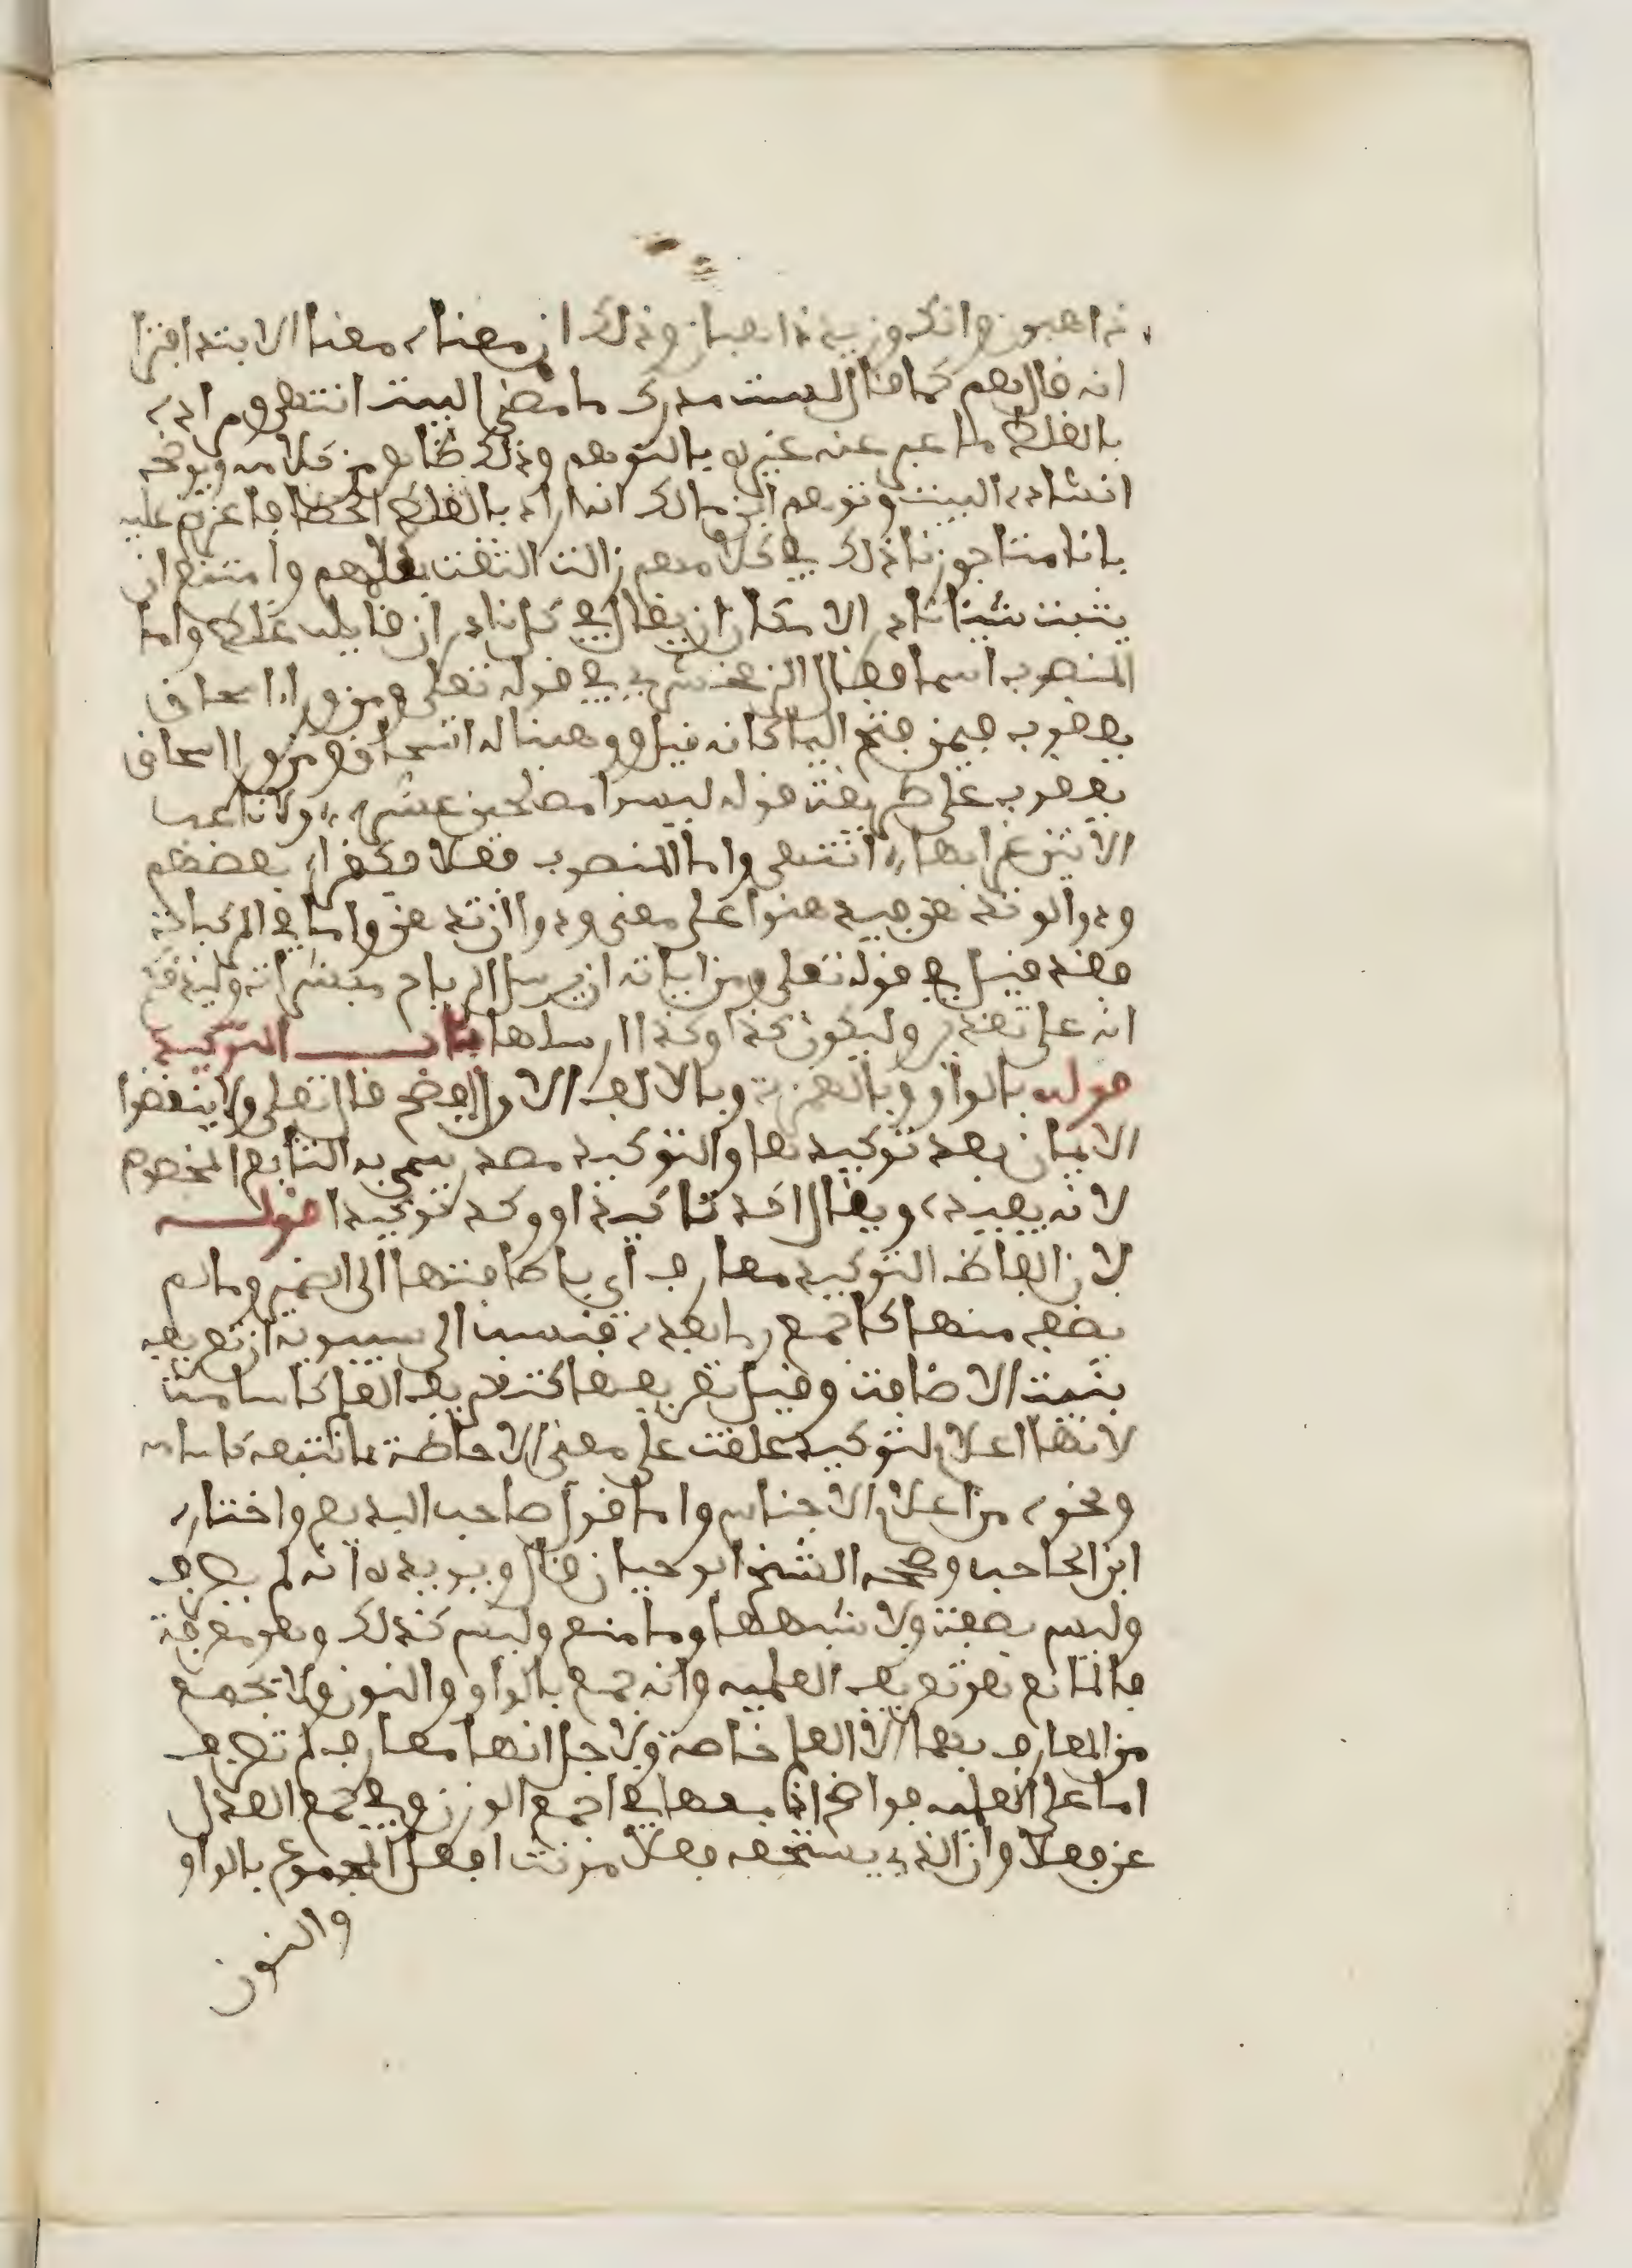 ذاهبون وانك وزيد ذاهبان وذلك ان معناه معنا الابتدا فترا
انه قال هم كما قال لست مدرك ما مضى البيت انتهى ومراده
بالغلط ما عبر عنه غيره بالتوهم وذلك ظاهر من كلامه ويوضحه
انشاده البيت وتوهم ابن مالك انه اراد بالغلط الخطا فاعترض عليه
بانا متى جوزنا ذلك في كلامهم زالت الثقة بكلامهم وامتنع ان
يثبت شيئا نادر الامكان ان يقال في كل نادر ان قايله غلط واما
المنصوب اسما فقال الزمخشري في قوله تعلى ومن وراء اسحاق
يعقوب فيمن فتح البا كانه قيل ووهبنا له اسحاق ومن وراء اسحاق
يعقوب على طريقة قوله ليسوا مصلحين عشيرة ولا ناعب
الا ببين غرابها انتهى واما المنصوب فعلا فكقراءة بعضهم
ودوا لو تدهن فيدهنوا على معنى ودوا ان تدهن واما في المركبات
فقد قيل في قوله تعلى ومن اياته ان يرسل الرياح مبشرات وليذيقكم
انه على تقدير وليكون كذا وكذا ارسلها باب التوكيد
قوله بالواو وبالهمزة وبالالف الاول افصح قال تعلى ولا تنقضوا
الايمان بعد توكيدها والتوكيد مصدر سمي به التابع المخصوص
لانه يفيده ويقال اكد تاكيدا ووكد توكيدا قوله
لان الفاظ التوكيد معارف اي باضافتها الى الضمير وما لم
يضف منها كاجمع وما بعده فنسب الى سيبويه ان تعريفه
بنية الاضافة وقيل تعريفها كتعريف العلم كاسامة
لانها اعلام لتوكيد علقت على معنى الاحاطة بما تتبعه كاسامة
ونحوه من اعلام الاجناس واما قول صاحب البديع واختاره
ابن الحاجب وصححه الشيخ ابو حيان قال ويويده انه لم يصرف
وليس بصفة ولا شبهها وما منع وليس كذلك وهو معرفة
فالمانع هو تعريف العلمية وانه جمع بالواو والنون ولا يجمع
من المعارف بهما الا العلم خاصة ولاجل انها معارف لم تصرف
اما على العلمية فواضح انما معها في اجمع الوزن وفي جمع العدل
عن فعلا وان الذي يستحقه فعلا مونث افعل المجموع بالواو
والنون